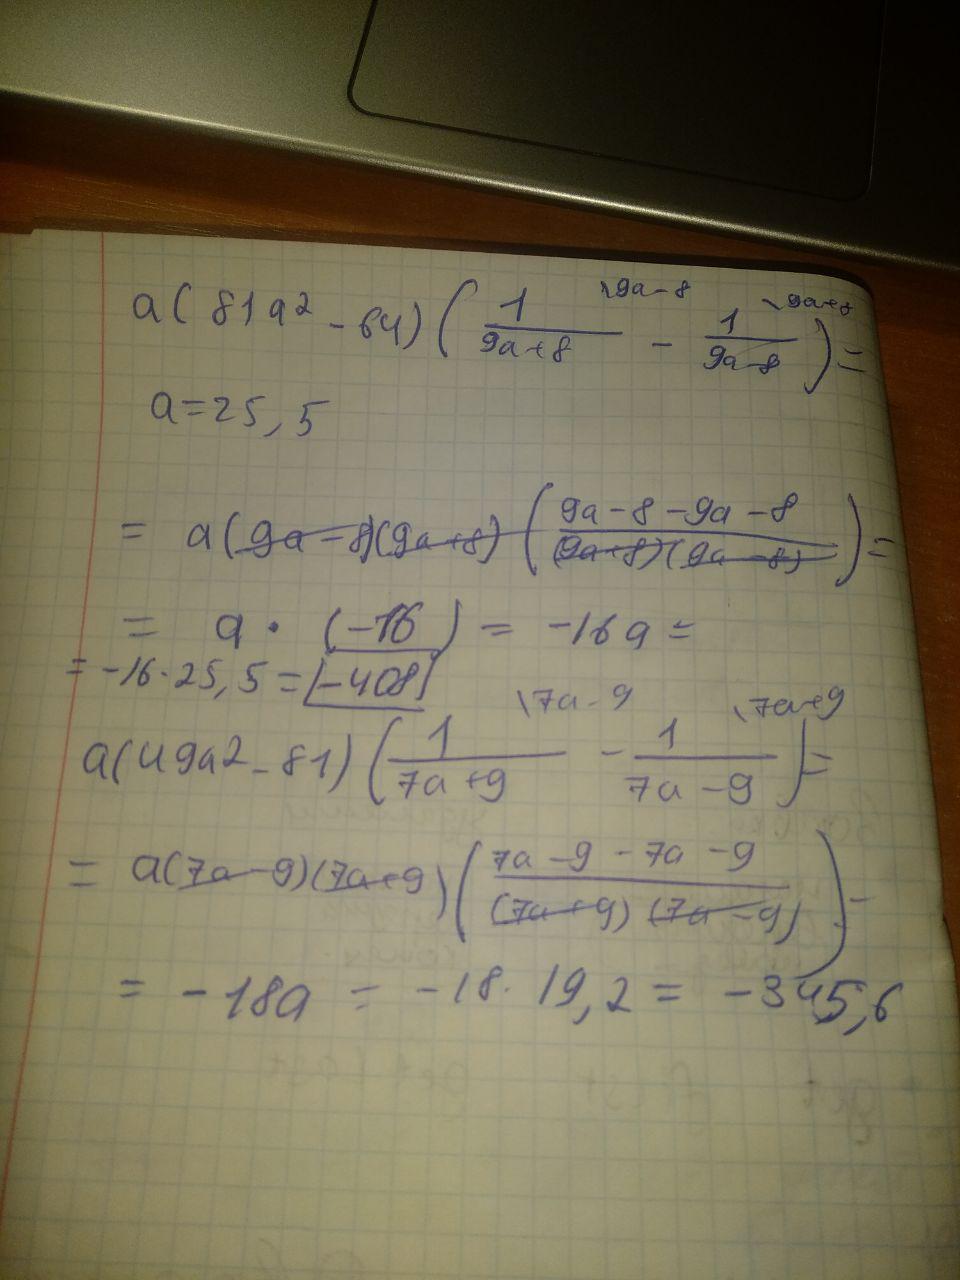 a(81a² - 64)(1/(9a+8) \9a-8 - 1/(9a-8) \9a+8) =
a = 25,5
= a(9a-8)(9a+8)((9a-8-9a-8)/((9a+8)(9a-8))) =
= a · (-16) = -16a =
= -16·25,5 = -408
a(49a² - 81)(1/(7a+9) \7a-9 - 1/(7a-9) \7a+9) =
= a(7a-9)(7a+9)((7a-9-7a-9)/((7a+9)(7a-9))) =
= -18a = -18·19,2 = -345,6